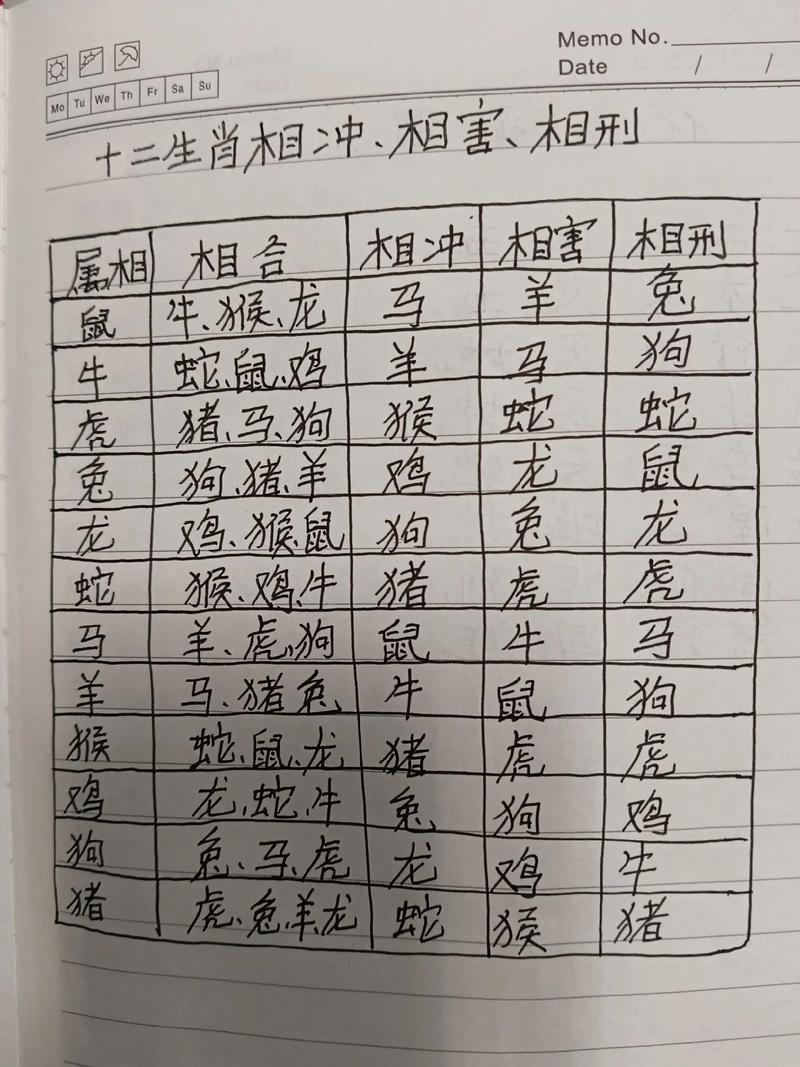 Memo No.
Date / /
Mo Tu We Th Fr Sa Su
十二生肖相冲、相害、相刑
属相 相合 相冲 相害 相刑
鼠 牛、猴、龙 马 羊 兔
牛 蛇、鼠、鸡 羊 马 狗
虎 猪、马、狗 猴 蛇 蛇
兔 狗、猪、羊 鸡 龙 鼠
龙 鸡、猴、鼠 狗 兔 龙
蛇 猴、鸡、牛 猪 虎 虎
马 羊、虎、狗 鼠 牛 马
羊 马、猪兔 牛 鼠 狗
猴 蛇、鼠、龙 猪 虎 虎
鸡 龙、蛇、牛 兔 狗 鸡
狗 兔、马、虎 龙 鸡 牛
猪 虎、兔、羊、龙 蛇 猴 猪